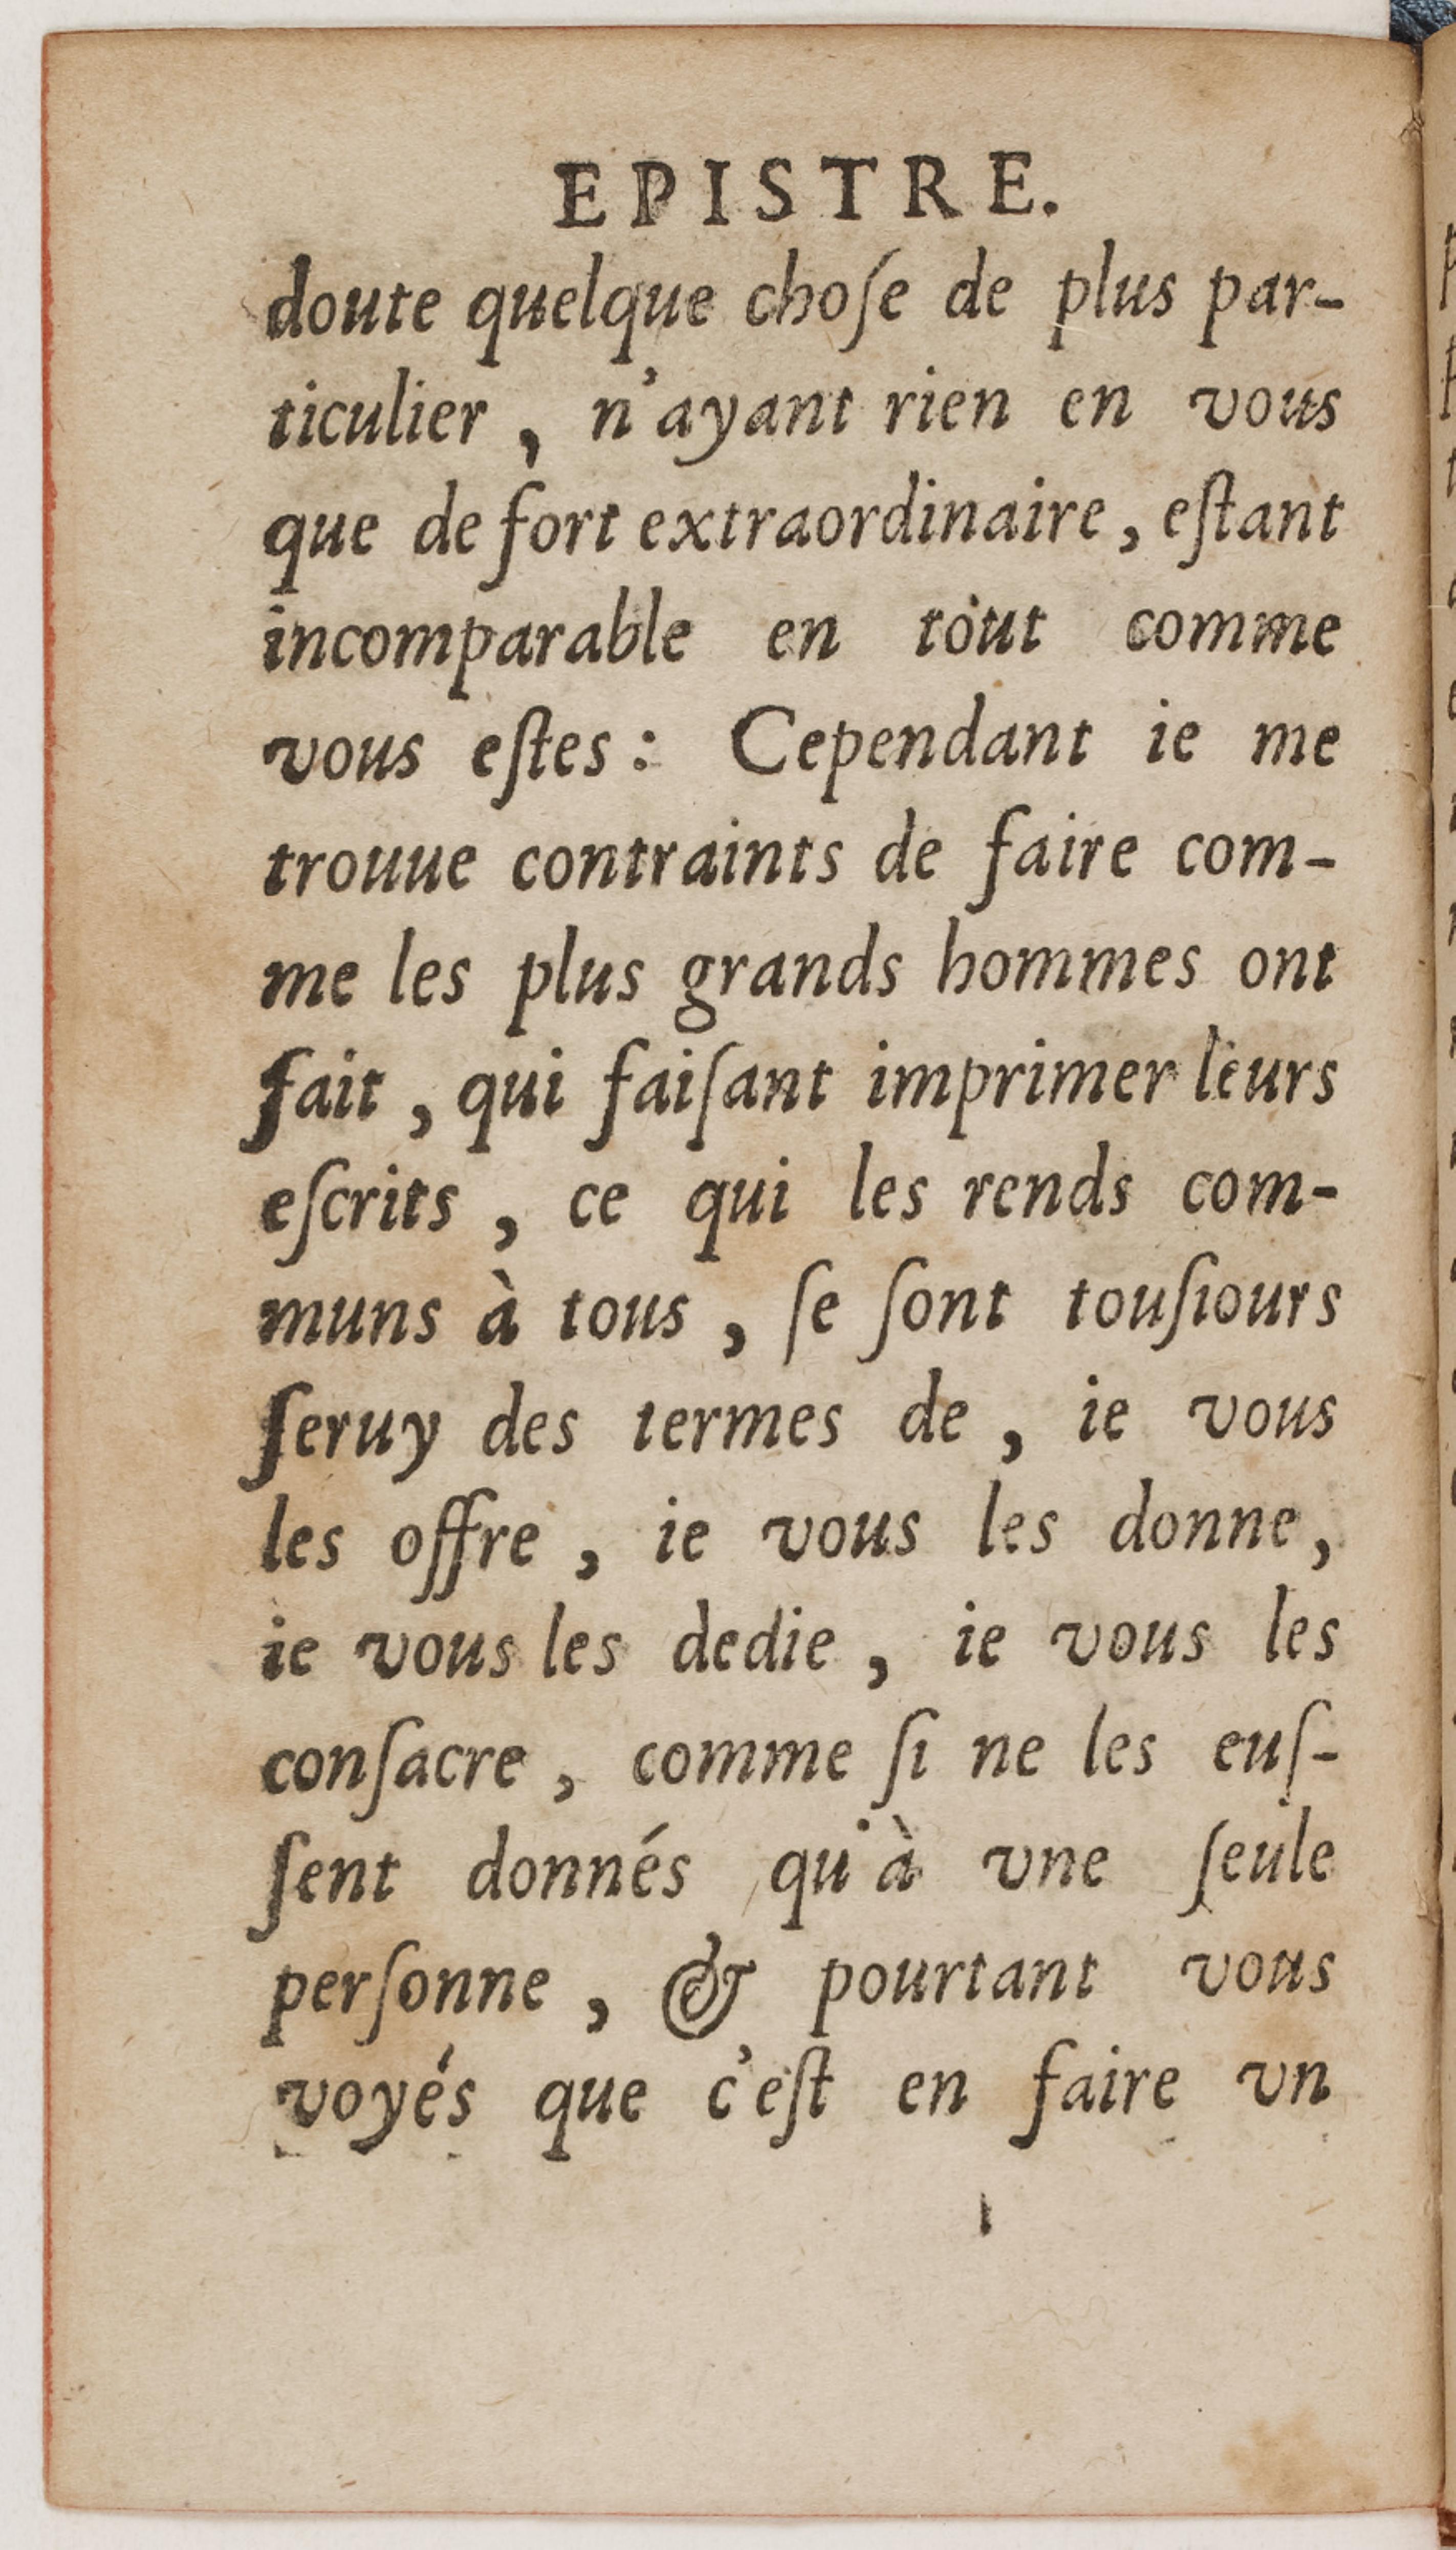 EPISTRE.
doute quelque choſe de plus par-
ticulier, n'ayant rien en vous
que de fort extraordinaire, eſtant
incomparable en tout comme
vous eſtes: Cependant ie me
trouue contraints de faire com-
me les plus grands hommes ont
fait, qui faiſant imprimer leurs
eſcrits, ce qui les rends com-
muns à tous, ſe ſont touſiours
ſeruy des termes de, ie vous
les offre, ie vous les donne,
ie vous les dedie, ie vous les
conſacre, comme ſi ne les euſ-
ſent donnés qu'à vne ſeule
perſonne, & pourtant vous
voyés que c'eſt en faire vn